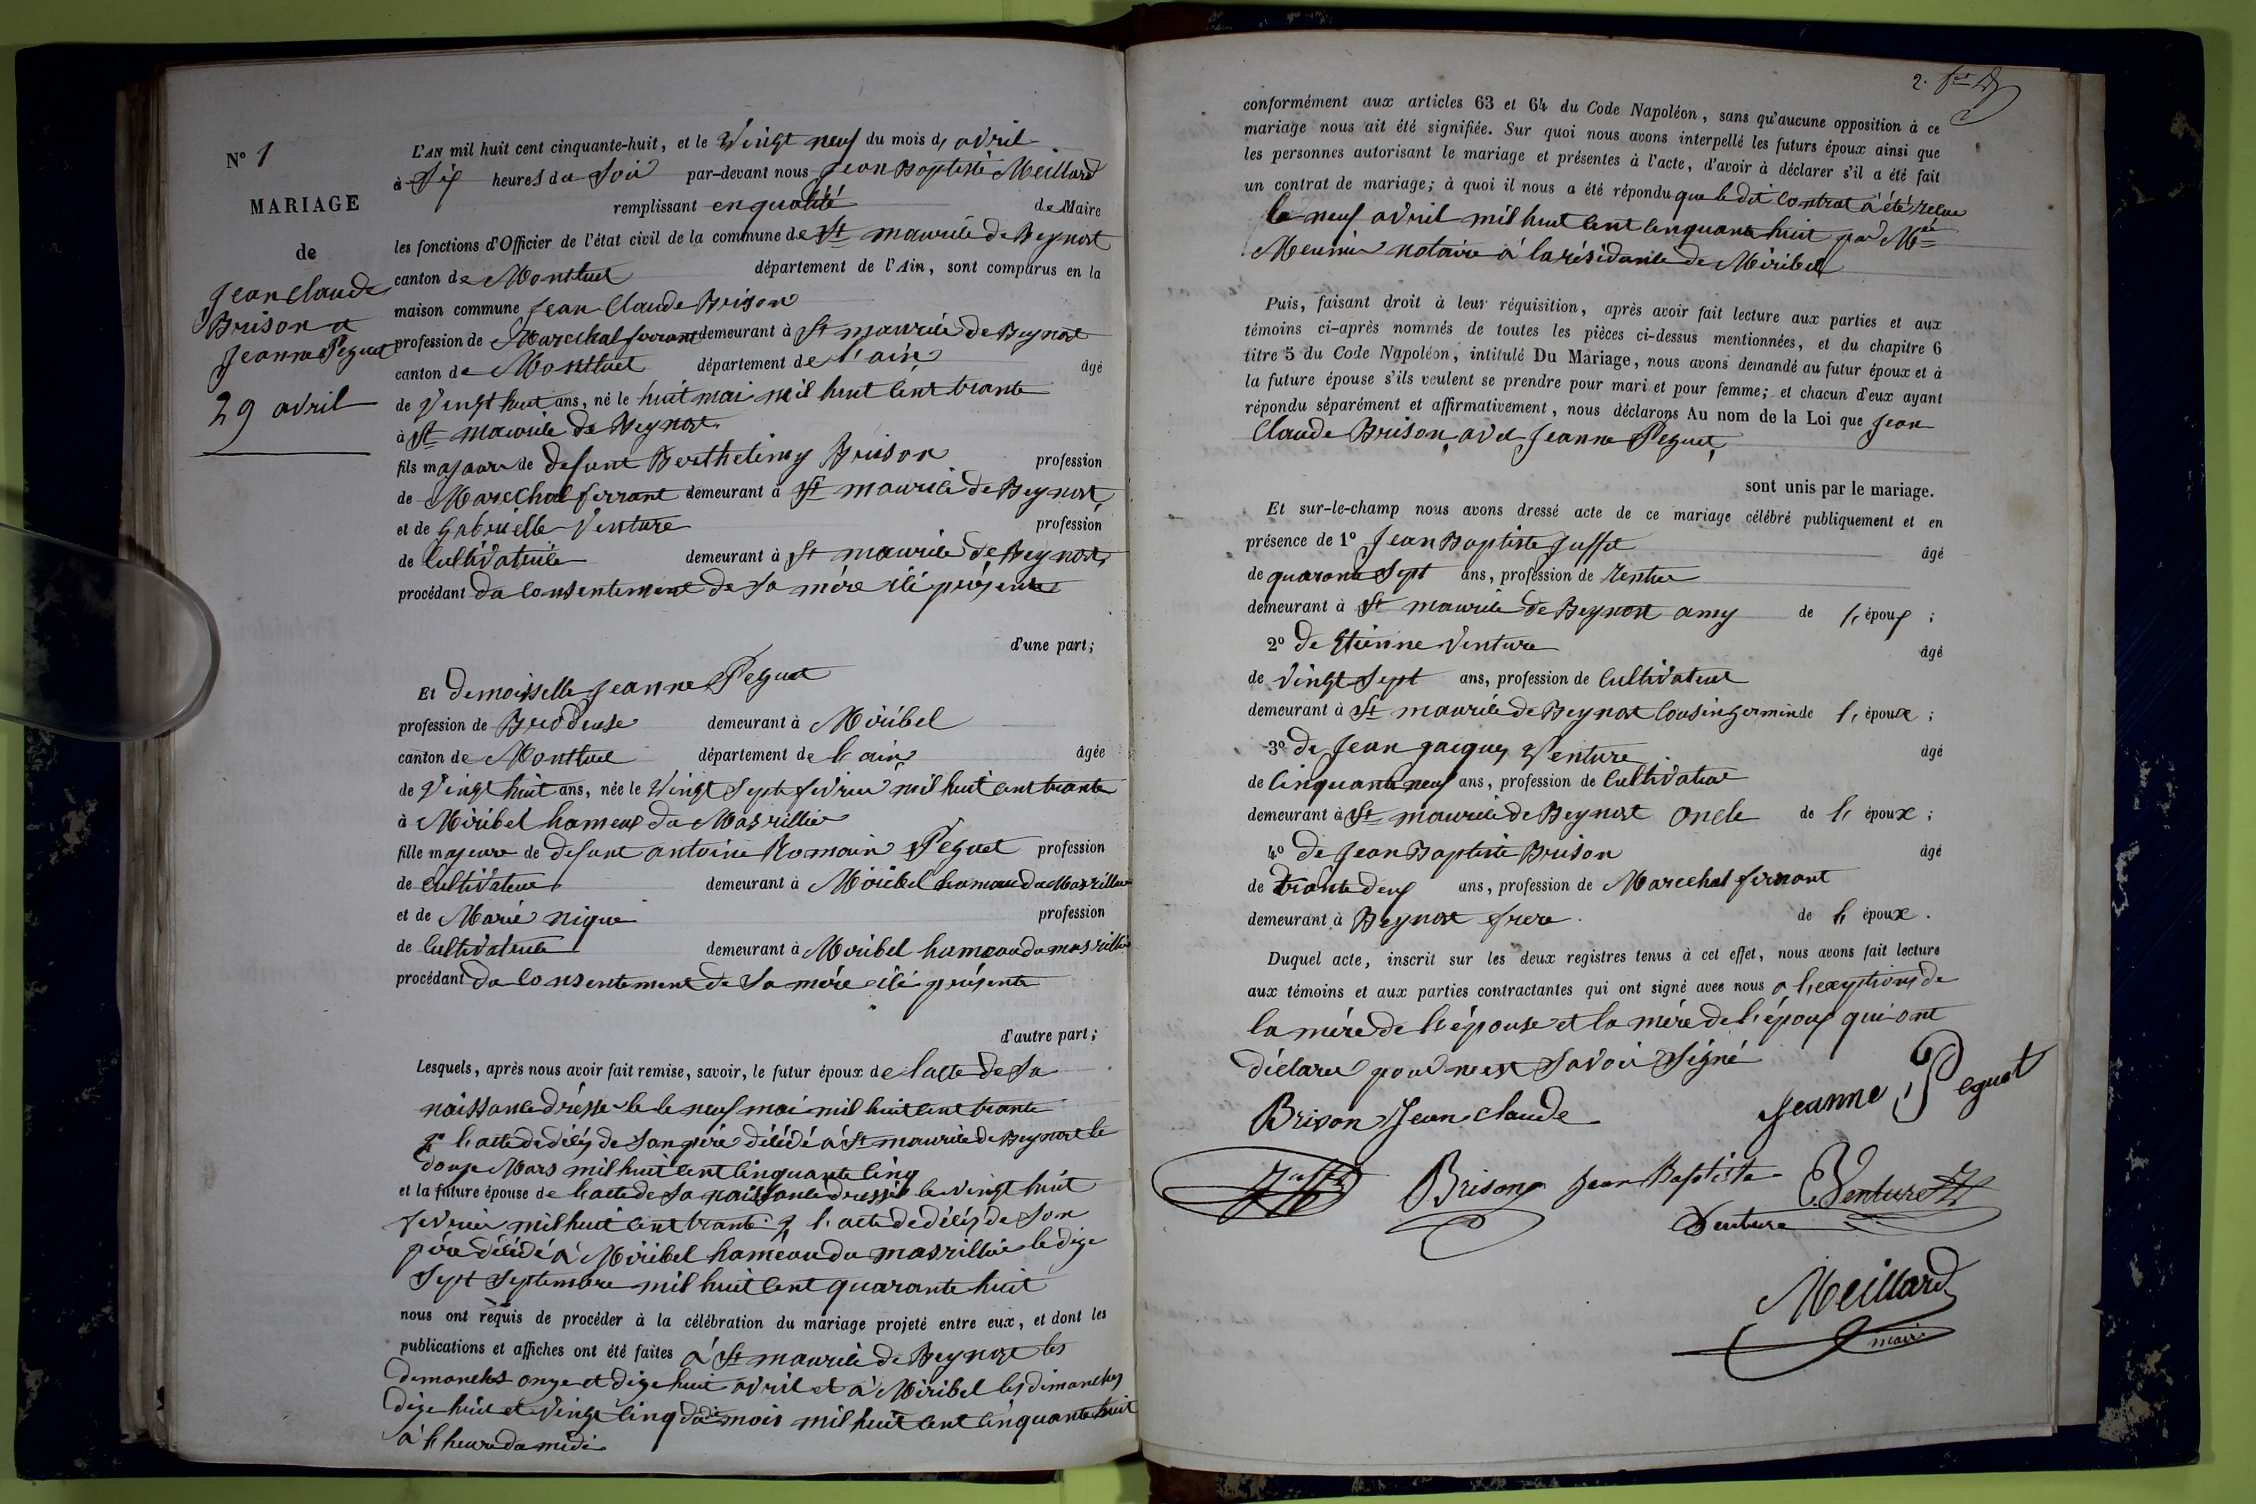 N° 1
MARIAGE
de
Jean Claude
Brison et
Jeanne Peguet
29 avril
L'AN mil huit cent cinquante-huit, et le Vingt neuf du mois d, avril
à Six heures du Soir par-devant nous Jean Baptiste Meillard
remplissant en qualité de Maire
les fonctions d'Officier de l'état civil de la commune de St maurice de Beynost
canton de Montluel département de l'Ain, sont comparus en la
maison commune Jean Claude Brison
profession de Marechal ferrant demeurant à St maurice de Beynost
canton de Montluel département de l'ain âgé
de Vingt huit ans, né le huit mai mil huit cent trante
à St maurice de Beynost
fils majeur de defunt Berthelimy Brison profession
de Marechal ferrant demeurant à St maurice de Beynost
et de gabrielle Venture profession
de Cultivatrice demeurant à St maurice de Beynost
procédant du consentement de sa mére ici présente
d'une part;
Et demoisselle Jeanne Peguet
profession de Brodeuse demeurant à Miribel
canton de Montluel département de l'ain âgée
de Vingt huit ans, née le Vingt Sept fevrier mil huit cent trante
à Miribel hameau du Masrillier
fille majeure de defunt antoine Romain Peguet profession
de Cultivateur demeurant à Miribel hameau du Masrillier
et de Marie nique profession
de Cultivatrice demeurant à Miribel hameau du masrillier
procédant du consentement de Sa mére ici présente
d'autre part;
Lesquels, après nous avoir fait remise, savoir, le futur époux de l'acte de Sa
naissance dressé le neuf mai mil huit cent trante
2° l'acte de décès de Son pére décédé à St maurice de Beynost le
douze Mars mil huit cent cinquante cinq
et la future épouse de l'acte de Sa naissance dressé le vingt huit
fevrier mil huit cent trante 2 l'acte de décès de Son
pére décédé à Miribel hameau du masrillier le dix
Sept Septembre mil huit cent quarante huit
nous ont requis de procéder à la célébration du mariage projeté entre eux, et dont les
publications et affiches ont été faites à St maurice de Beynost les
dimanches onze et dixe huit avril et à Miribel les dimanches
dixe huit et Vingt cinq du mois mil huit cent cinquante huit
à l'heure du midi
2.
conformément aux articles 63 et 64 du Code Napoléon, sans qu'aucune opposition à ce
mariage nous ait été signifiée. Sur quoi nous avons interpellé les futurs époux ainsi que
les personnes autorisant le mariage et présentes à l'acte, d'avoir à déclarer s'il a été fait
un contrat de mariage; à quoi il nous a été répondu que le dit contrat à été reçue
le neuf avril mil huit cent cinquante huit par
Meunier notaire à la résidance de Miribel
Puis, faisant droit à leur réquisition, après avoir fait lecture aux parties et aux
témoins ci-après nommés de toutes les pièces ci-dessus mentionnées, et du chapitre 6
titre 5 du Code Napoléon, intitulé Du Mariage, nous avons demandé au futur époux et à
la future épouse s'ils veulent se prendre pour mari et pour femme; et chacun d'eux ayant
répondu séparément et affirmativement, nous déclarons Au nom de la Loi que Jean
Claude Brison avec Jeanne Peguet
sont unis par le mariage.
Et sur-le-champ nous avons dressé acte de ce mariage célébré publiquement et en
présence de 1° Jean Baptiste Juffet âgé
de quarante Sept ans, profession de rentier
demeurant à St maurice de Beynost amy de l, époux ;
2° de Etienne Venture âgé
de Vingt Sept ans, profession de Cultivateur
demeurant à St maurice de Beynost Cousin germin de l, époux ;
3° de Jean Jacques Venture âgé
de Cinquante neuf ans, profession de Cultivateur
demeurant à St maurice de Beynost Oncle de l, époux ;
4° de Jean Baptiste Brison âgé
de trante deux ans, profession de Marechal ferrant
demeurant à Beynost frere de l, époux .
Duquel acte, inscrit sur les deux registres tenus à cet effet, nous avons fait lecture
aux témoins et aux parties contractantes qui ont signé avec nous a l'exeption de
la mére de l'épouse et la mére de l'époux qui ont
déclaré pour ne Savoir Signé
Brison Jean claude Jeanne Peguet
Juffet Brison Jean Baptiste E. Venture
Venture
Meillard
maire